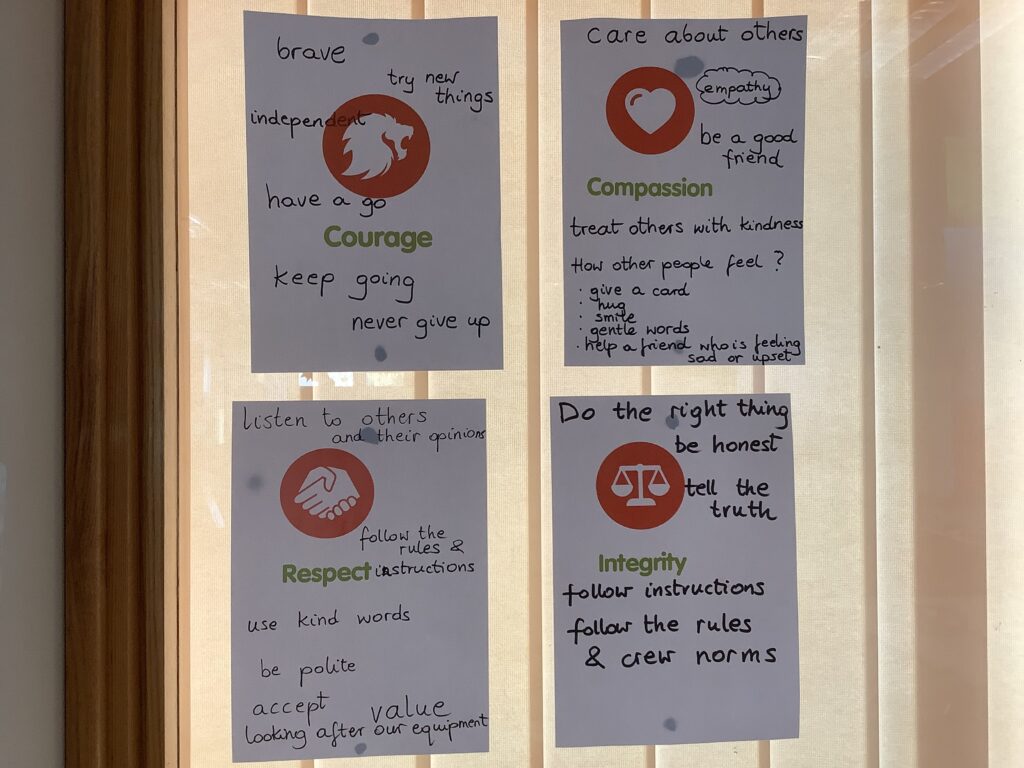 brave
try new
things
independent
have a go
Courage
keep going
never give up
Care about others
empathy
be a good
friend
Compassion
treat others with kindness
How other people feel ?
· give a card
· hug
· smile
· gentle words
· help a friend who is feeling
sad or upset
Listen to others
and their opinions
follow the
rules &
Respect instructions
use kind words
be polite
accept value
looking after our equipment
Do the right thing
be honest
tell the
truth
Integrity
follow instructions
follow the rules
& crew norms